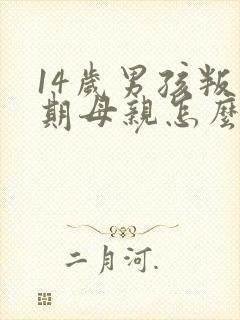 14歲男孩叛
期母親怎麼
二月河.